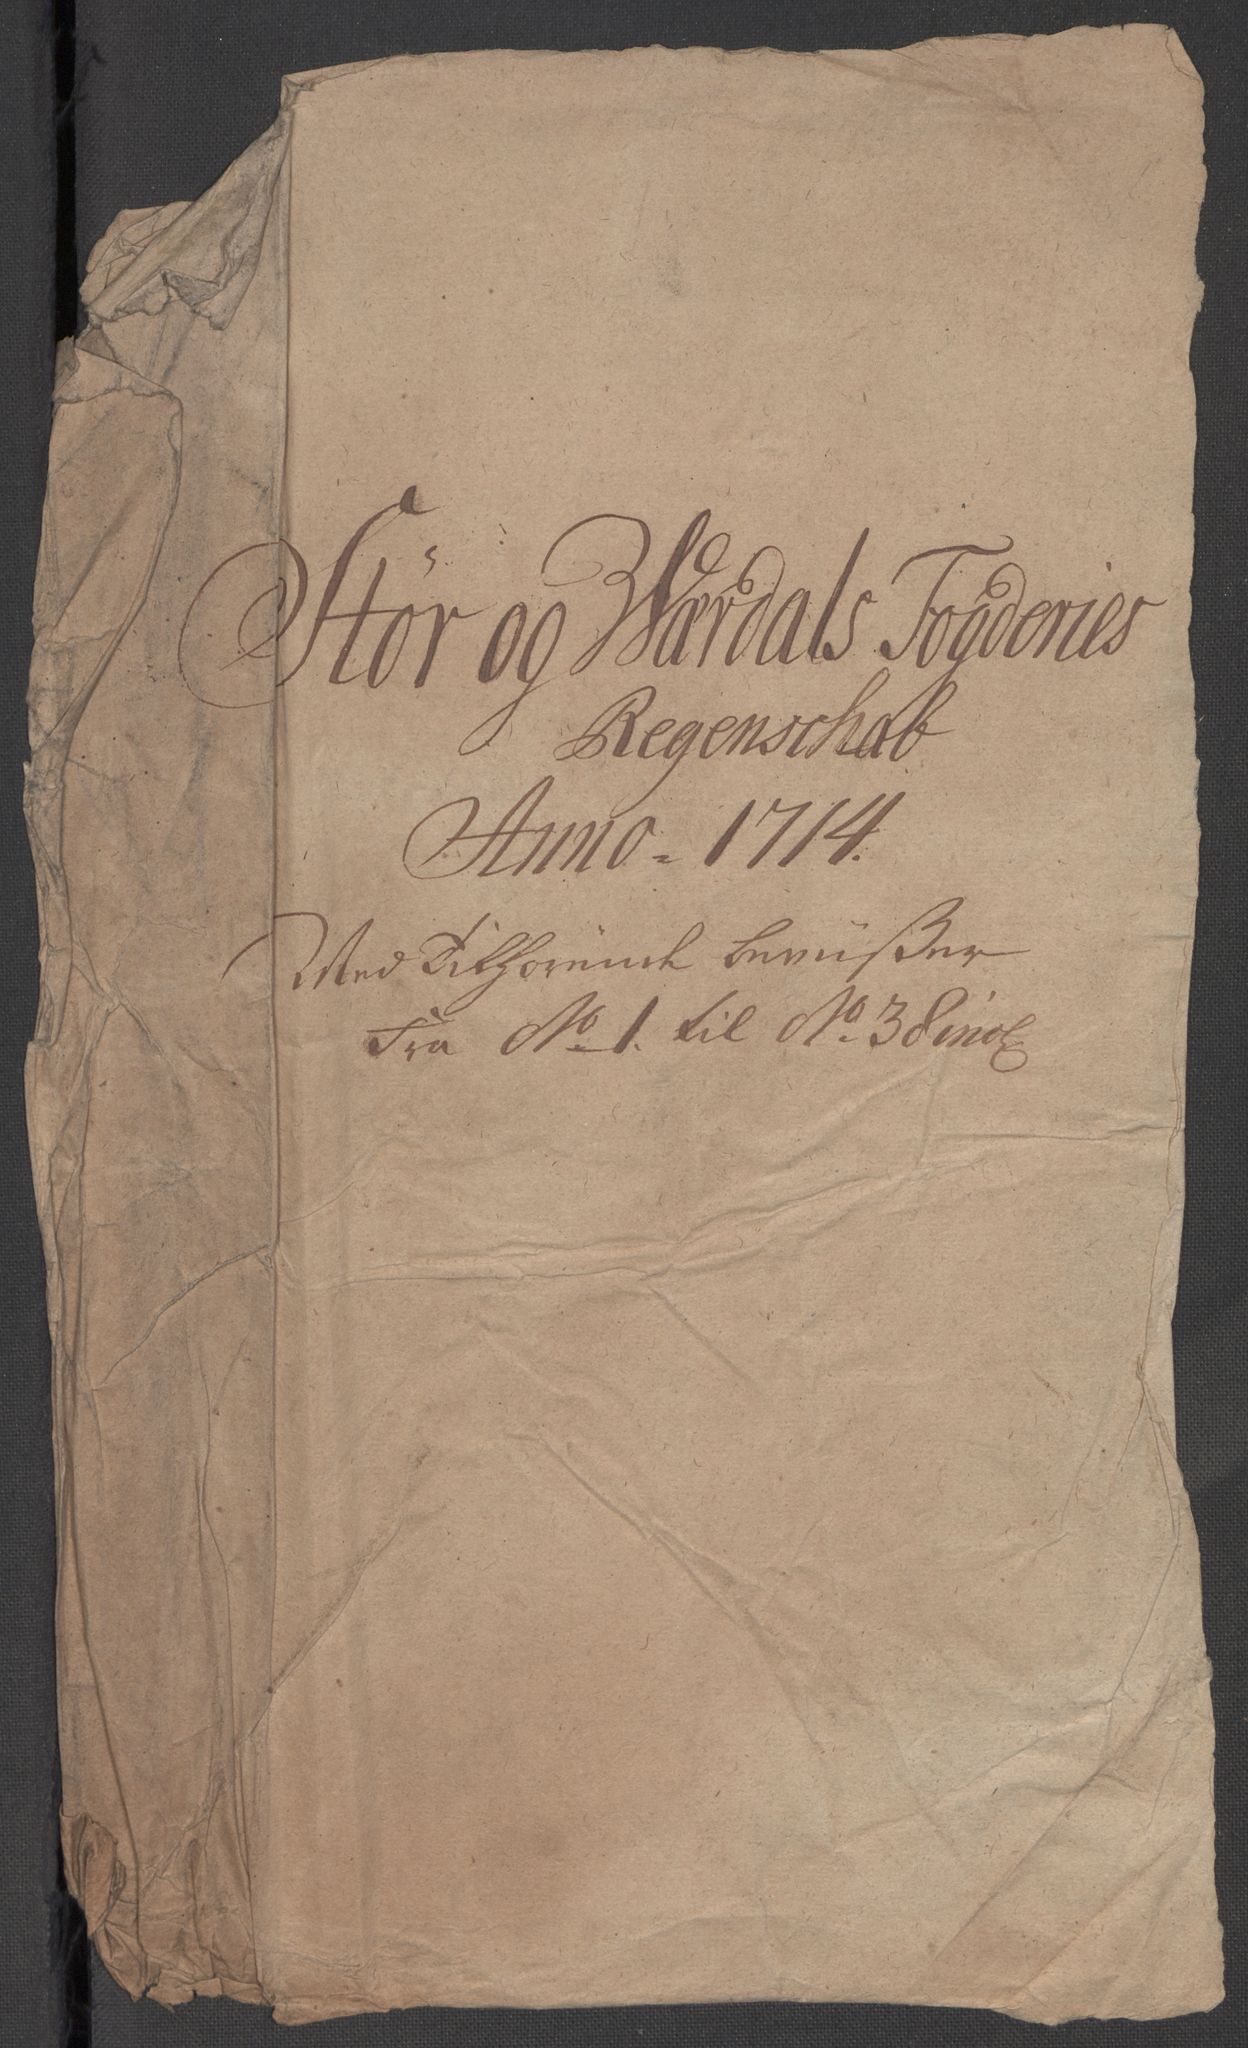 Stör og Wærdals Fogderies
Regenschab
Anno = 1714.
Med Tilhörende bewiißer
Fra No 1. til No 38 incl